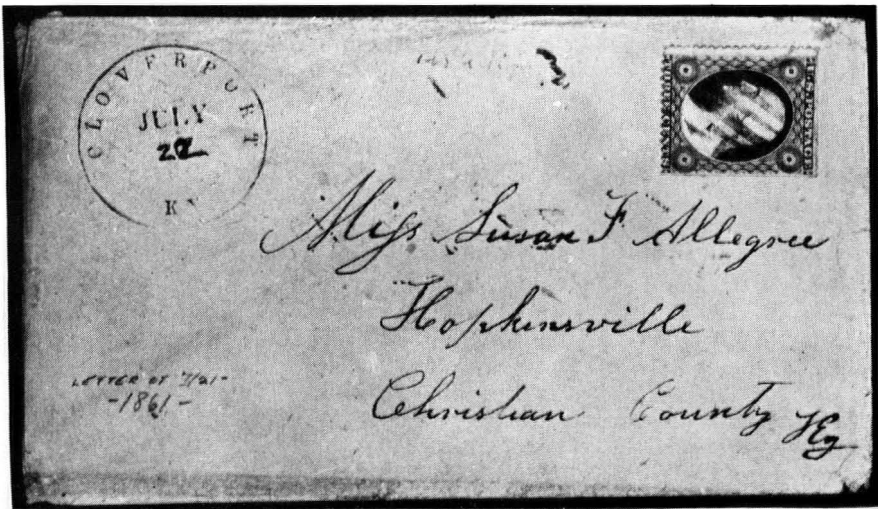 CLOVERPORT
JULY
22
KY
U.S. POSTAGE
Miss Susan F Allegree
Hopkinsville
Christian County Ky
LETTER OF 7/21-
-1861-